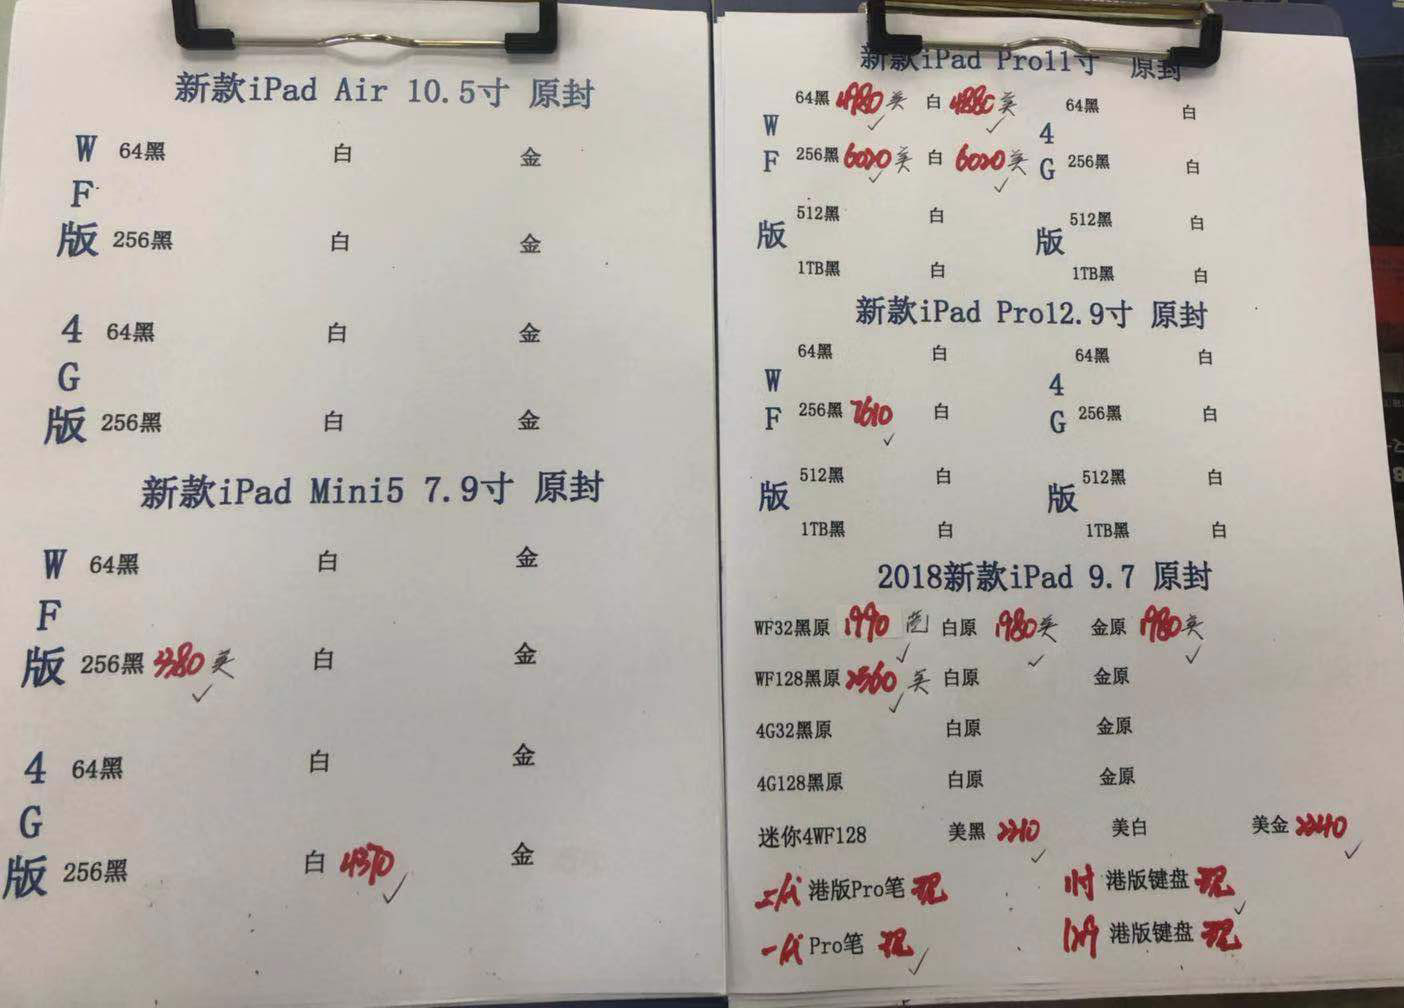 新款iPad Air 10.5寸 原封
WF版
64黑 白 金
256黑 白 金
4G版
64黑 白 金
256黑 白 金
新款iPad Mini5 7.9寸 原封
WF版
64黑 白 金
256黑 3380 美 白 金
4G版
64黑 白 金
256黑 白 4370 金
新款iPad Pro11寸 原封
WF版
64黑 4980 美 白 4880 美
256黑 6020 美 白 6020 美
512黑 白
1TB黑 白
4G版
64黑 白
256黑 白
512黑 白
1TB黑 白
新款iPad Pro12.9寸 原封
WF版
64黑 白
256黑 7610 白
512黑 白
1TB黑 白
4G版
64黑 白
256黑 白
512黑 白
1TB黑 白
2018新款iPad 9.7 原封
WF32黑原 1990 白原 1980 美 金原 1980 美
WF128黑原 2560 美 白原 金原
4G32黑原 白原 金原
4G128黑原 白原 金原
迷你4WF128 美黑 2210 美白 美金 2240
二代 港版Pro笔 现 11寸 港版键盘 现
一代 Pro笔 现 12.9 港版键盘 现